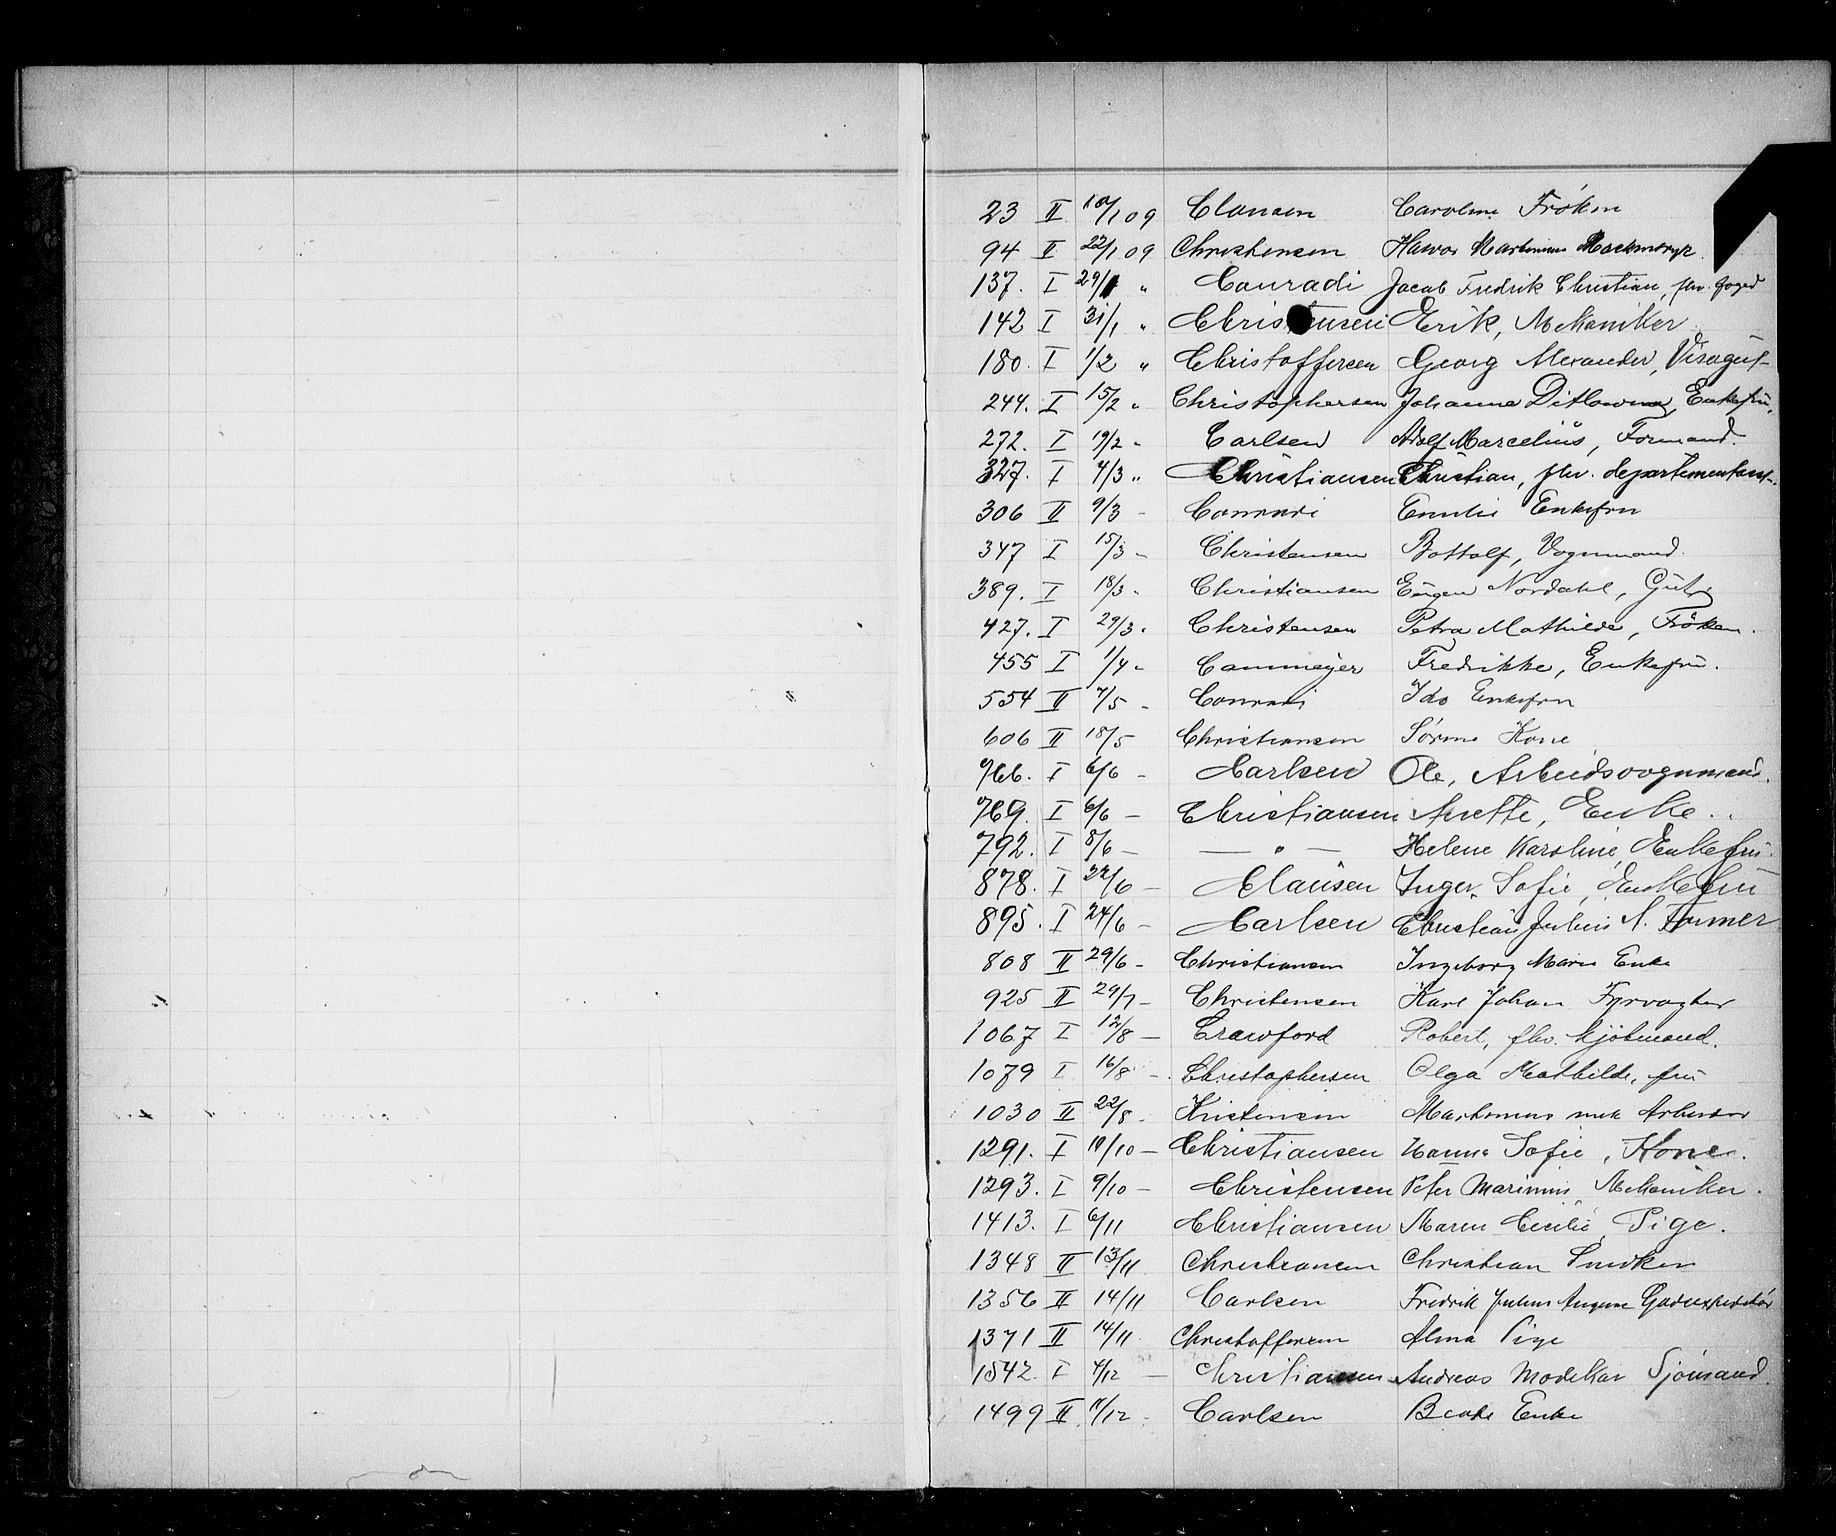 23 II 18/1 09 Clausen Caroline Frøken
94 II 22/1 09 Christensen Martinius
137. I 29/1 " Conradi Jacob Fredrik Christian, fhv. foged
142 I 31/1 " Christensen Erik, Mekaniker
180. I 1/2 " Christoffersen Georg Alexander, Visergut
244. I 15/2 " Christophersen Johanne Ditlowina, Enkefru.
272. I 19/2 - Carlsen Adolf Marcelius, Formand.
327. I 4/3 " Christiansen Christian, fhv.
306 II 9/3 - Conradi Emilie Enkefru
347 I 15/3 - Christensen Bottolf, Vognmand.
389. I 18/3 - Christiansen Eugen Nordahl, Gut
427. I 29/3 - Christensen Petra Mathilde, Frøken.
455 I 1/4 - Cammeyer Fredrikke, Enkefru.
554 II 7/5 - Conradi Ida Enkefru
606 II 18/5 Christiansen Sørine Kone
766. I 6/6 - Carlsen Ole, Arbeidsvognmand.
769. I 6/6 - Christiansen Anette, Enke.
792. I 8/6 - — " — Helene Karoline, Enkefru.
878. I 22/6 - Clausen Inger Sofie, Enkefru
895. I 24/6 - Carlsen Christian Julius A. Former
808 II 29/6 - Christiansen Ingeborg Marie Enke
925 II 29/7 - Christensen Karl Johan Fyrvogter
1067 I 12/8 - Crawford Robert, fhv. kjøbmand.
1079 I 16/8 - Christophersen Olga Mathilde, fru
1030 II 22/8 - Kristensen Martinius mek Arbeider
1291. I 10/10 - Christiansen Hanna Sofie, Kone.
1293. I 9/10 - Christensen Peter Marinius, Mekaniker.
1413. I 6/11 Christiansen Maren Cecilie, Pige.
1348 II 13/11 Christiansen Christian Snedker
1356 II 14/11 Carlsen Fredrik Julius August Godsexpeditør
1371 II 14/11 Christoffersen Alma Pige
1542. I 4/12 - Christiansen Andreas Sjømand.
1499 II 11/12 - Carlsen Beate Enke